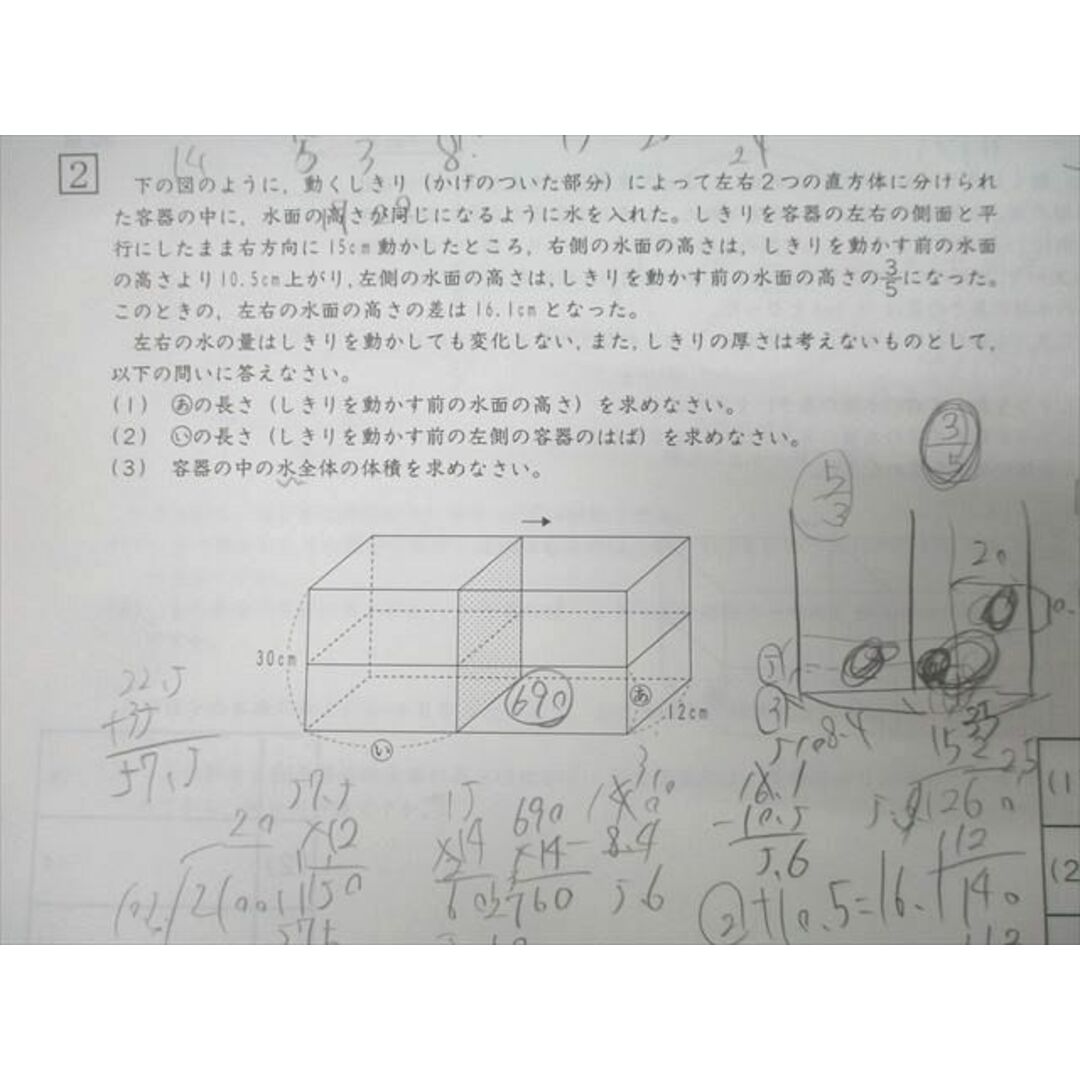 14 5 3 8. 24
2
下の図のように，動くしきり（かげのついた部分）によって左右2つの直方体に分けられ
た容器の中に，水面の高さが同じになるように水を入れた。しきりを容器の左右の側面と平
行にしたまま右方向に15cm動かしたところ，右側の水面の高さは，しきりを動かす前の水面
の高さより10.5cm上がり，左側の水面の高さは，しきりを動かす前の水面の高さの3/5になった。
このときの，左右の水面の高さの差は16.1cmとなった。
左右の水の量はしきりを動かしても変化しない，また，しきりの厚さは考えないものとして，
以下の問いに答えなさい。
(1) あの長さ（しきりを動かす前の水面の高さ）を求めなさい。
(2) いの長さ（しきりを動かす前の左側の容器のはば）を求めなさい。
(3) 容器の中の水全体の体積を求めなさい。
3/5
5/3
20
30cm
690
あ
12cm
い
5
3
8.4
22.5
+35
57.5
57.5
×12
1150
575
15
×14
60
690
×14
2760
14.0
-8.4
5.6
16.1
-10.5
5.6
②+10.5=16.1
22.5
5.6)1260
112
140
112
20
2100
(1
(2